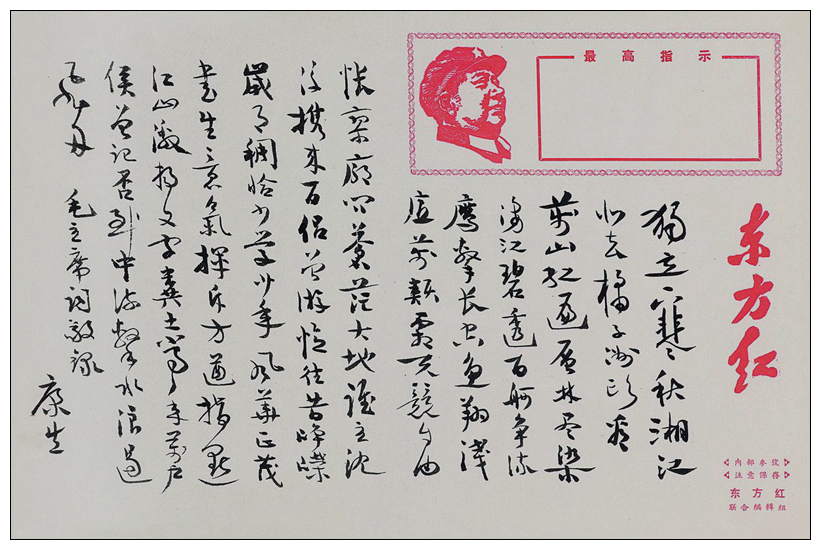 最高指示
东方红
内部参攷
注意保存
东方红
联合编辑组
獨立寒秋湘江
北去橘子洲头看
萬山红遍层林尽染
漫江碧透百舸争流
鹰擊长空鱼翔浅
底萬類霜天競自由
怅寥廓问蒼茫大地谁主沈
浮携来百侣曾游忆往昔峥嵘
歲月稠恰同学少年风华正茂
書生意氣挥斥方遒指點
江山激扬文字粪土当年萬户
侯曾记否到中流擊水浪遏
飞舟 毛主席词敬录
康生